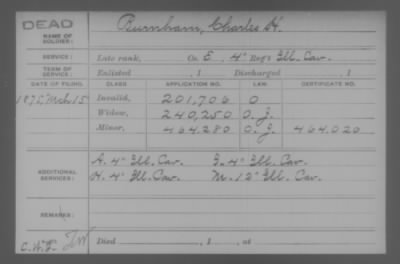 DEAD
NAME OF SOLDIER: Burnham, Charles H.
SERVICE: Late rank, Co. E. 4" Reg't Ill. Cav.
TERM OF SERVICE: Enlisted , 1 Discharged , 1
DATE OF FILING. CLASS. APPLICATION NO. LAW. CERTIFICATE NO.
1875 Mch 15 Invalid, 201,706 O
Widow, 240,250 O. J.
Minor, 464,280 O. J. 464,026
ADDITIONAL SERVICES: A. 4" Ill. Cav. F. 4" Ill. Cav.
H. 4" Ill. Cav. M. 12" Ill. Cav.
REMARKS:
Died , 1 , at